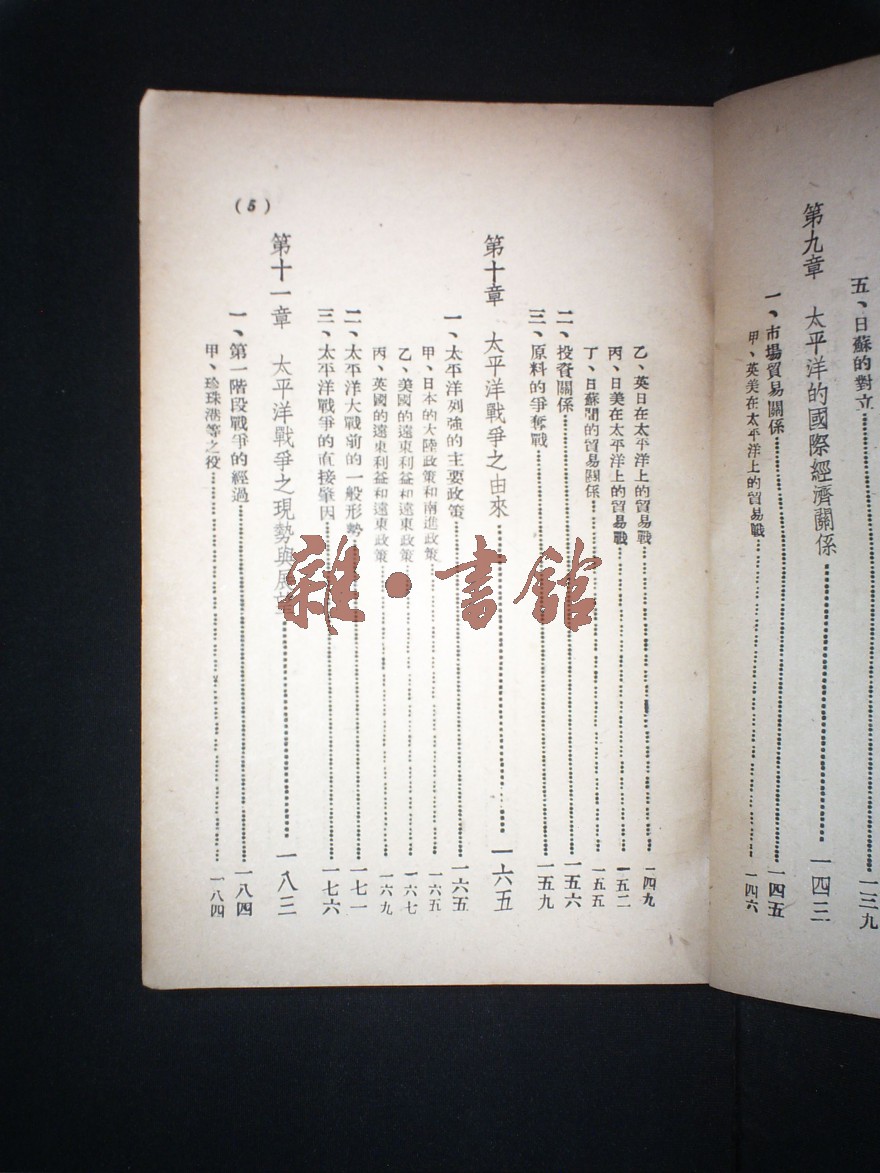 五、日蘇的對立……一三九
第九章　太平洋的國際經濟關係……一四三
一、市場貿易關係……一四五
甲、英美在太平洋上的貿易戰……一四六
乙、英日在太平洋上的貿易戰……一四九
丙、日美在太平洋上的貿易戰……一五二
丁、日蘇間的貿易關係……一五五
二、投資關係……一五六
三、原料的爭奪戰……一五九
第十章　太平洋戰爭之由來……一六五
一、太平洋列強的主要政策……一六五
甲、日本的大陸政策和南進政策……一六五
乙、美國的遠東利益和遠東政策……一六七
丙、英國的遠東利益和遠東政策……一六九
二、太平洋大戰前的一般形勢……一七一
三、太平洋戰爭的直接肇因……一七六
第十一章　太平洋戰爭之現勢與展……一八三
一、第一階段戰爭的經過……一八四
甲、珍珠港等之役……一八四
(5)
雜·書館